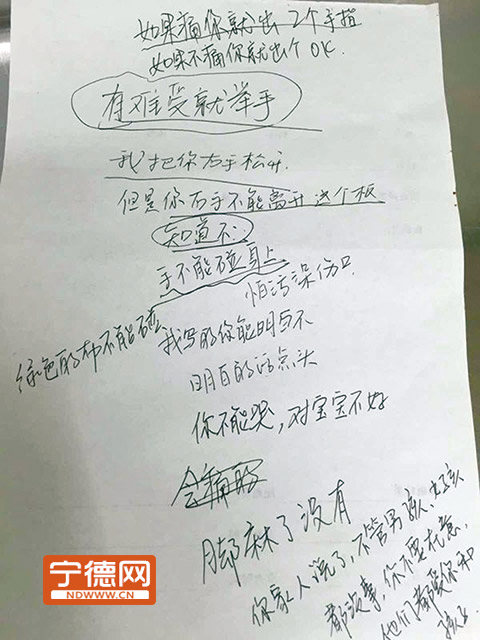 如果痛你就出2个手指
如果不痛你就出个OK.
有难受就举手
我把你右手松开.
但是你右手不能离开这个板
知道不.
手不能碰身上
怕污染伤口
绿色的布不能碰
我写的你能明白不
明白的话点头
你不能哭,对宝宝不好
会痛
脚麻了没有
你家人说了,不管男孩、女孩
都没事,你不要在意,
他们都爱你和
宁德网
NDWWW.CN